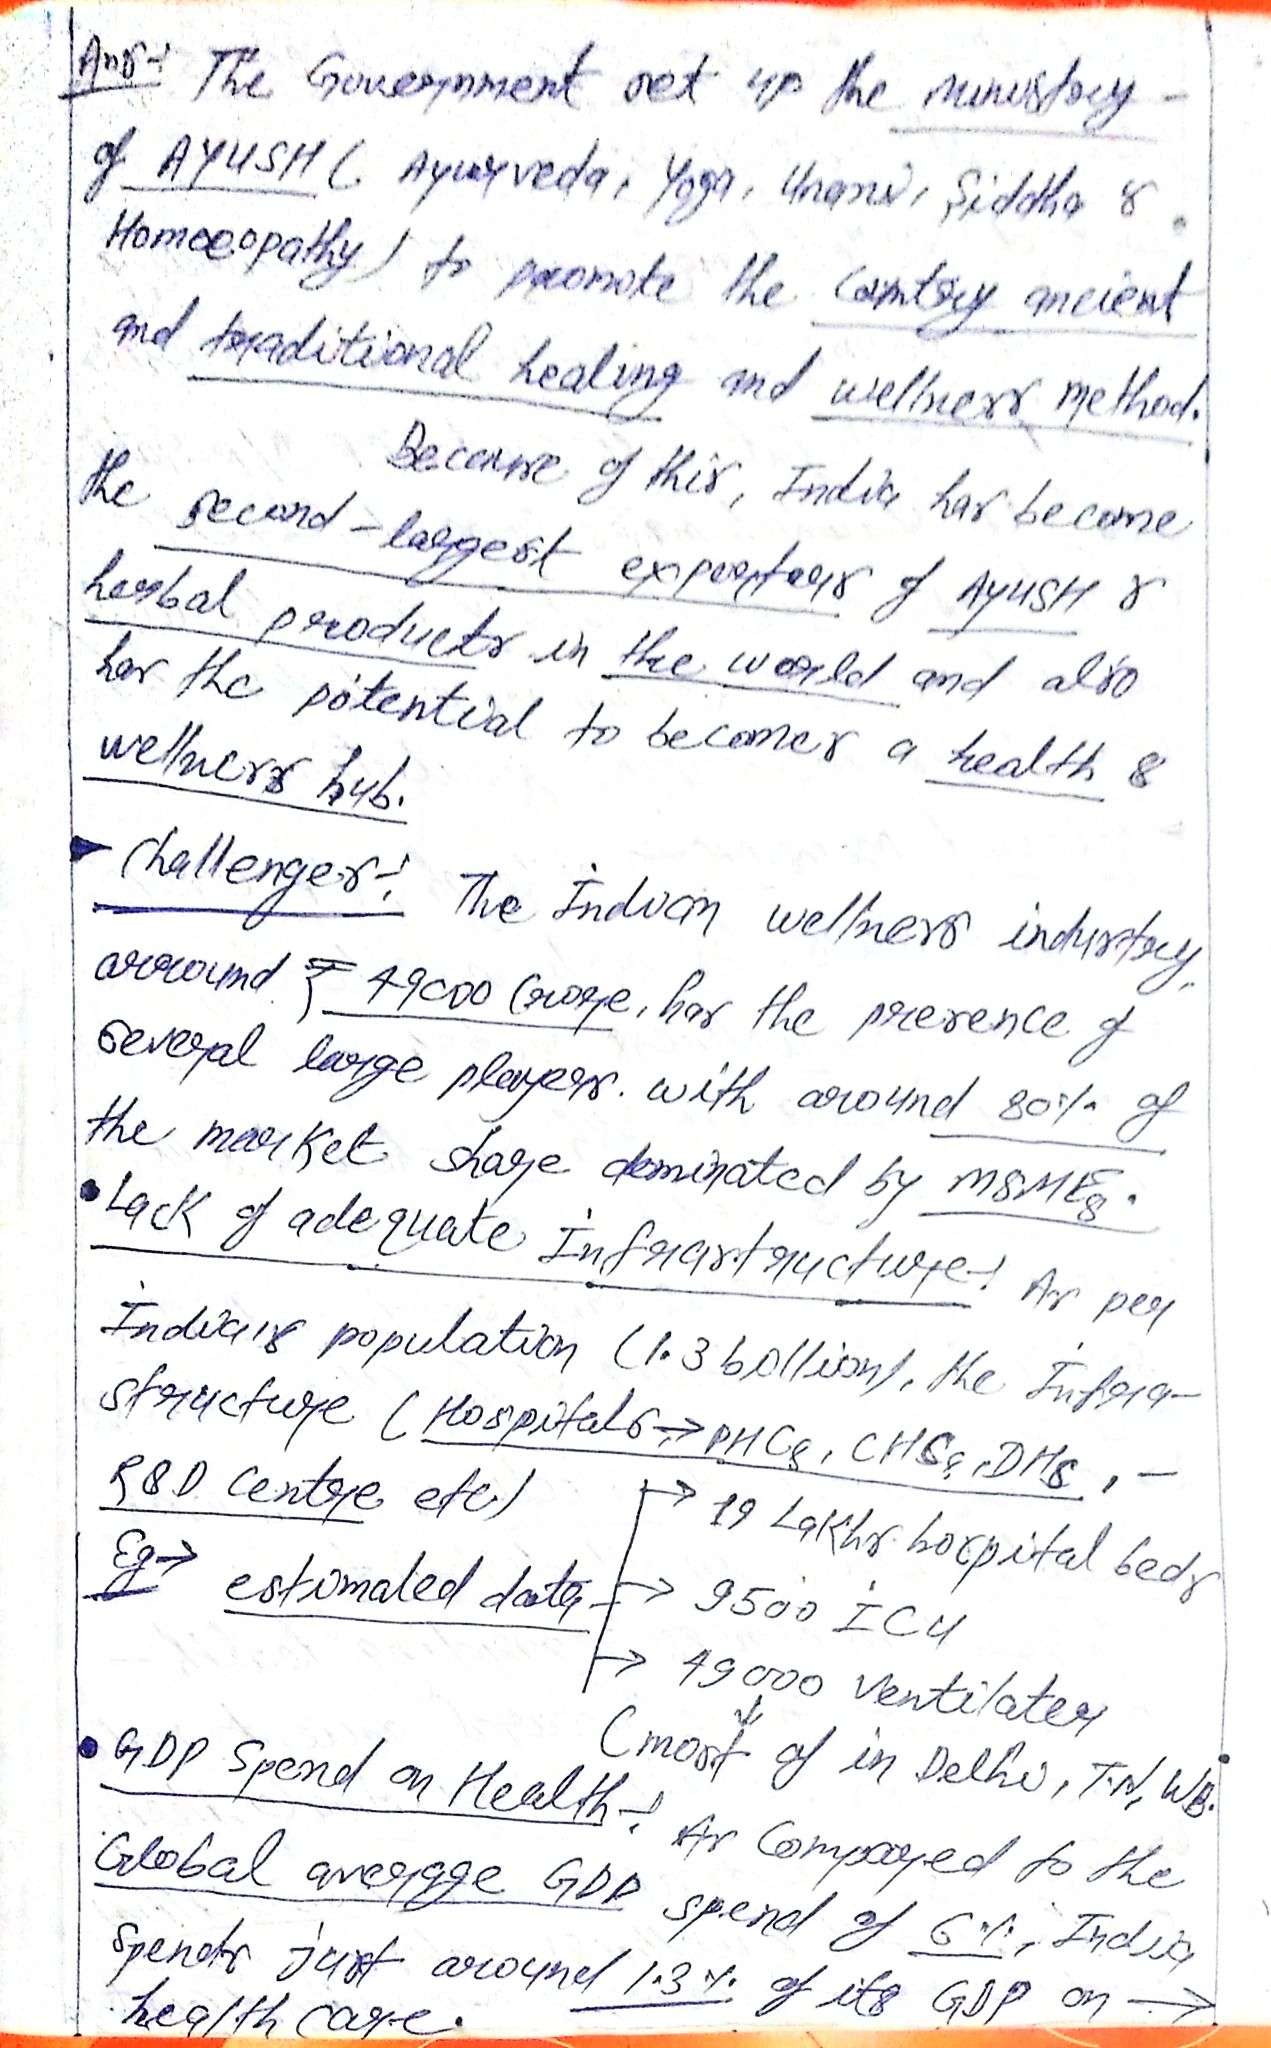 Ans:- The Government set up the ministry -
of AYUSH ( Ayurveda, Yoga, Unani, Siddha &
Homoeopathy) to promote the Country ancient
and traditional healing and wellness method.
Because of this, India has become
the second-largest exporters of AYUSH &
herbal products in the world and also
has the potential to becomes a health &
wellness hub.
Challenges:- The Indian wellness industry,
arround ₹ 49000 Crore, has the presence of
several large players. with around 80% of
the market share dominated by MSMEs.
• Lack of adequate Infrastructure:- As per
India's population (1.3 billion), the Infra-
structure (Hospitals → PHCs, CHCs, DHs, -
R&D Centre etc)
→ 19 Lakhs hospital beds
Eg → estimated data → 9500 ICU
→ 49000 Ventilater
(most of in Delhi, T.N, WB.
• GDP Spend on Health:- As Compared to the
Global average GDP spend of 6%, India
spends just around 1.3% of its GDP on →
health care.